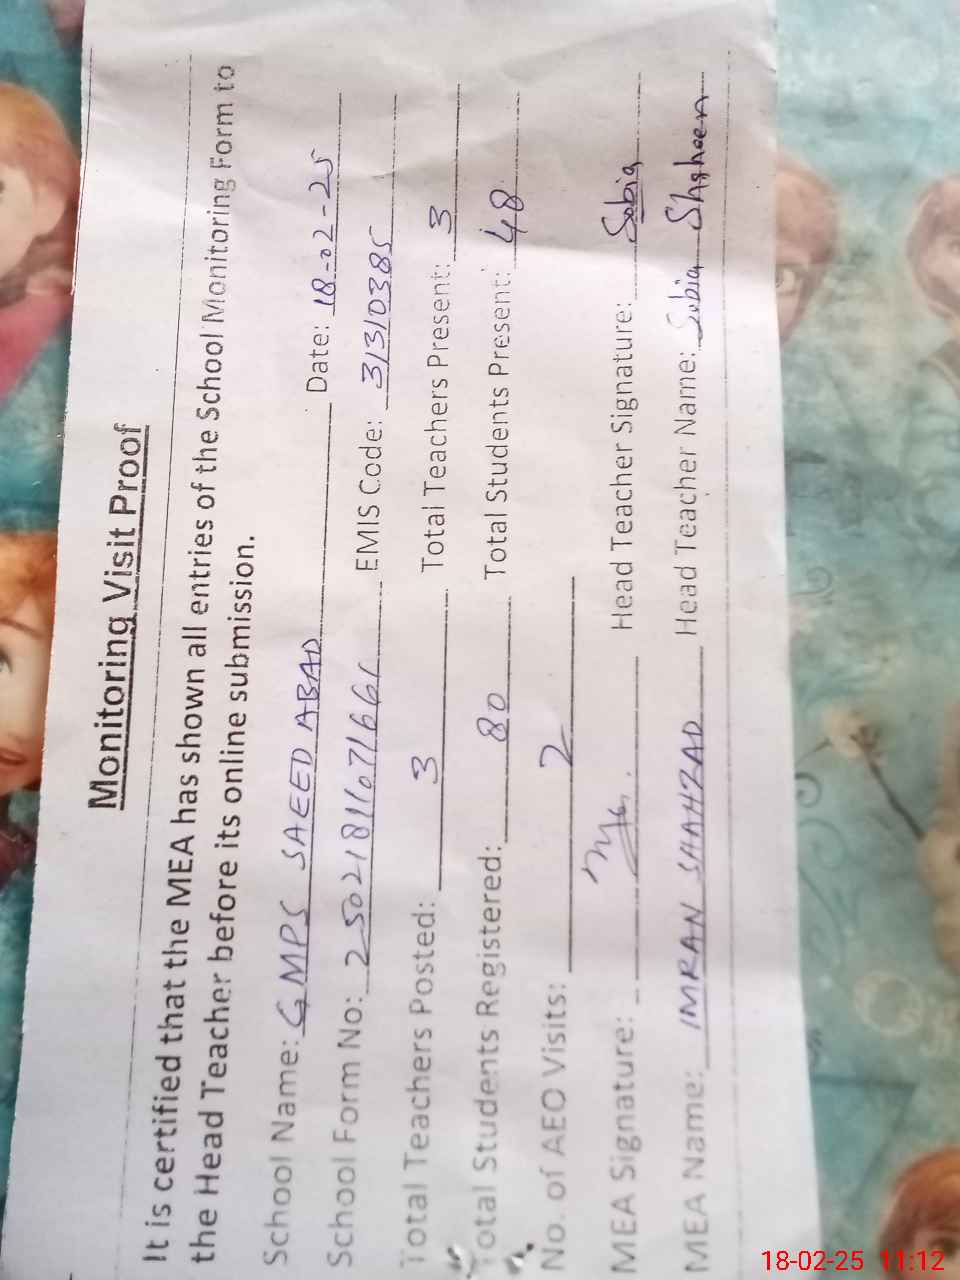 Monitoring Visit Proof
It is certified that the MEA has shown all entries of the School Monitoring Form to
the Head Teacher before its online submission.
School Name: GMPS SAEED ABAD Date: 18-02-25
School Form No: EMIS Code: 31310385
Total Teachers Posted: 3 Total Teachers Present: 3
Total Students Registered: 80 Total Students Present: 48
No. of AEO Visits: 2
MEA Signature: Head Teacher Signature: Sobia
MEA Name: IMRAN SHAHZAD Head Teacher Name: Sobia Shaheen
18-02-25 11:12